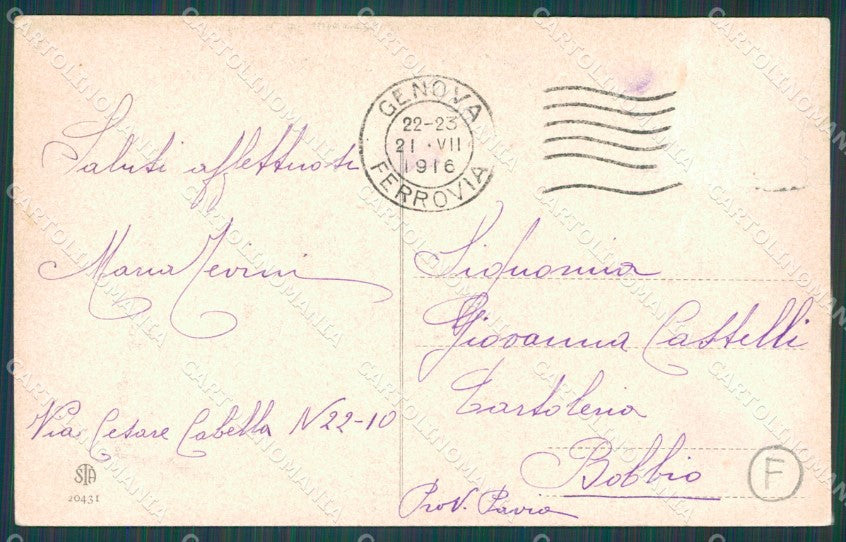 GENOVA
22-23
21·VII
1916
FERROVIA
Saluti affettuosi
Maria
Via Cesare Cabella N 22-10
STA
20431
Signorina
Giovanna Castelli
Cartoleria
Bobbio
Prov. Pavia
F
CARTOLINOMANIA